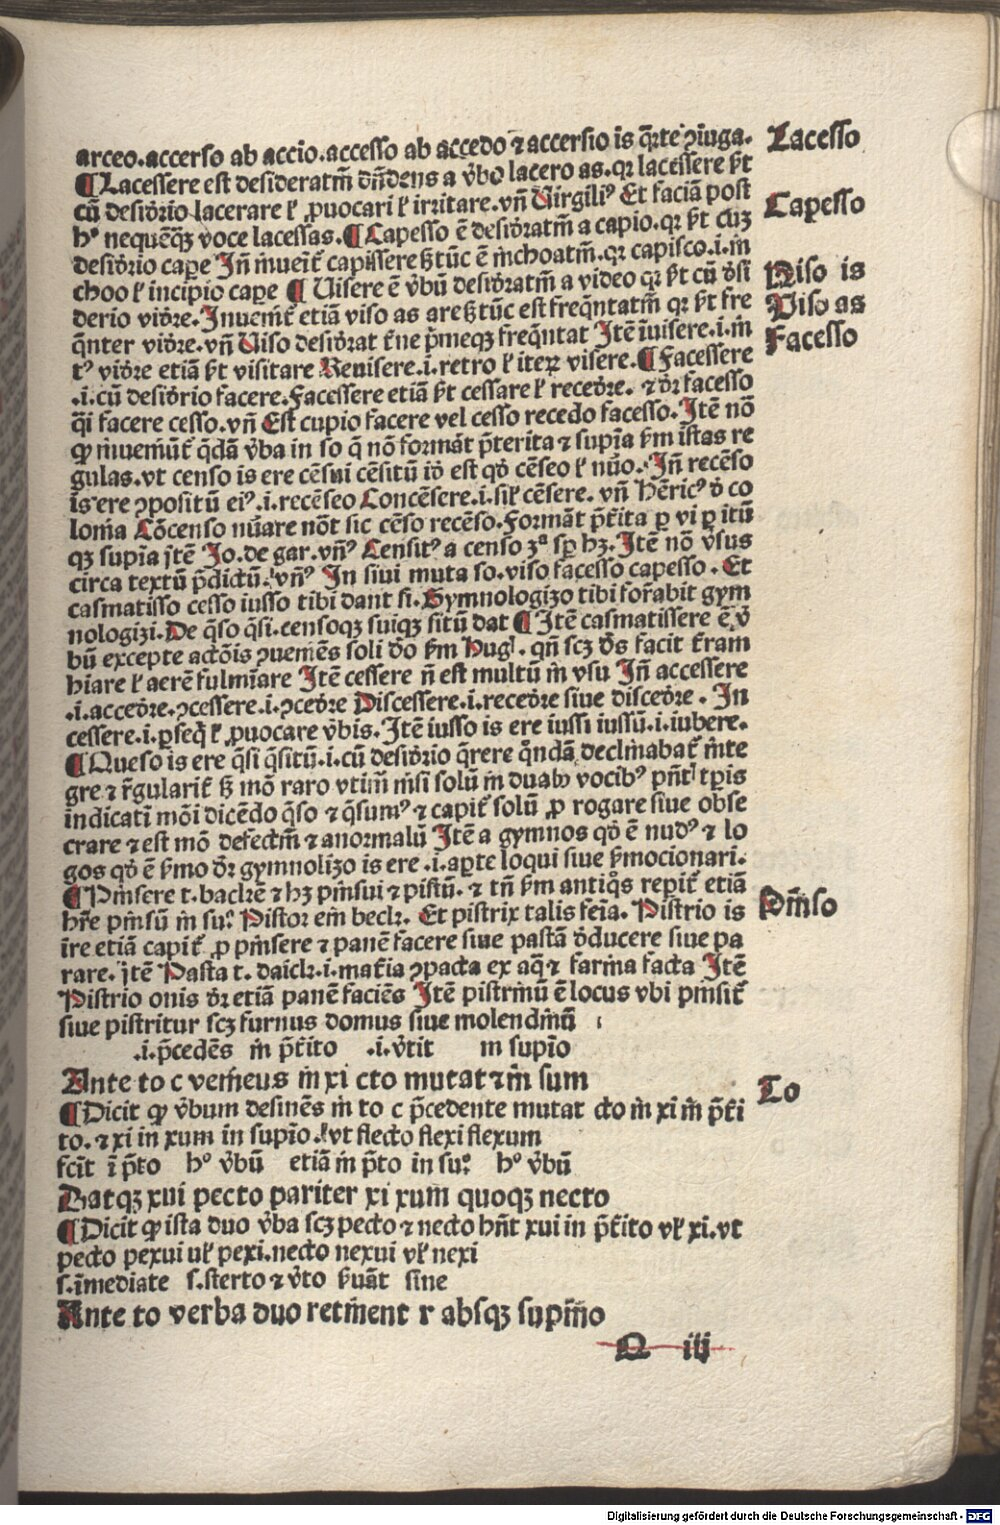 arceo.accerso ab accio.accesso ab accedo ⁊ accersio is q̄rte ꝯiuga.
Lacesso
¶Lacessere est desideratm̄ dn̄dens a v̓bo lacero as.qꝛ lacessere s̄t
cū desid̓rio lacerare ł ꝓuocari ł irritare.vn̄ Virgiliꝰ Et faciā post
Capesso
hꝰ nequēq̄ꝫ voce lacessas.¶Capesso ē desid̓ratm̄ a capio.qꝛ s̄t cuꝫ
desid̓rio capꝑe Jn̄ inueit̄ capissere sꝫ tūc ē inchoatm̄.qꝛ capisco.i.in
Viso is
choo ł incipio capꝑe ¶ Uisere ē v̓bū desid̓ratm̄ a video qꝛ s̄t cū d̓si
Viso as
derio vid̓re.Jnuenit̄ etiā viso as are sꝫ tūc est freq̄ntatm̄ qꝛ s̄t fre
Facesso
q̄nter vid̓re.vn̄ Uiso desid̓rat s̄ne p̄meqꝫ freq̄ntat Jtē īuisere.i.in
tꝰ vid̓re etiā s̄t visitare Reuisere.i.retro ł iteꝝ visere.¶Facessere
.i.cū desid̓rio facere.Facessere etiā s̄t cessare ł reced̓re. ⁊ d̓r facesso
q̄i facere cesso.vn̄ Est cupio facere vel cesso recedo facesso.Jtē nō
ꝙ inueniūt̄ q̄dā v̓ba in so q̄ nō formāt p̄terita ⁊ supīa s̄m istas re
gulas.vt censo is ere cēsui cēsitū iō est qd̓ cēseo ł nūo.Jn̄ recēso
is ere ꝯpositū eiꝰ.i.recēseo Concēsere.i.sił cēsere. vn̄ Hēricꝰ d̓ co
lonia Cōcenso nūare nōt sic cēso recēso.Formāt p̄t̄ita ꝑ vi ꝑ itū
qꝫ supīa jtē Jo.de gar.vn̄ꝰ Censitꝰ a censo ꝫᵃ sꝑ hꝫ.Jtē nō v̓sus
circa textū p̄dictū.vn̄ꝰ Jn siui muta so.viso facesso capesso. Et
casmatisso cesso iusso tibi dant si.Gymnologizo tibi for̄abit gym
nologizi.De q̄so q̄si.censoqꝫ suiqꝫ situ dat ¶Jtē casmatissere ē v̓
bū excepte actōis ꝯueniēs soli dō s̄m Hugꝉ. qn̄ scꝫ d̓s facit t̄ram
hiare ł aerē fulmīare Jtē cessere n̄ est multū in vsu Jn̄ accessere
.i.acced̓re.ꝯcessere.i.ꝯced̓re Discessere.i.reced̓re siue disced̓re. Jn
cessere.i.ꝑseq̄ ł ꝓuocare v̓bis.Jtē iusso is ere iussi iussū.i.iubere.
¶Queso is ere q̄si q̄sitū.i.cū desid̓rio q̄rere q̄ndā declinabat̄ inte
gre ⁊ r̄gularit̄ sꝫ mō raro vtim̄ nisi solū in duabꝰ vocibꝰ pn̄tꝉ tꝑis
indicati mōi dicēdo q̄so ⁊ q̄sumꝰ ⁊ capit̄ solū ꝓ rogare siue obse
crare ⁊ est mō defectm̄ ⁊ anormalū Jtē a gymnos qd̓ ē nudꝰ ⁊ lo
gos qd̓ ē s̄mo d̓r gymnolizo is ere .i.aꝑte loqui siue s̄mocionari.
¶Pinsere t.bachē ⁊ hꝫ pinsui ⁊ pistū. ⁊ tn̄ s̄m antiq̄s repit̄ etiā
Pīnso
hr̄e pinsū in su. Pistor em̄ beclꝛ. Et pistrix talis feīa. Pistrio is
ire etiā capit̄ ꝓ pinsere ⁊ panē facere siue pastā d̓ducere siue pa
rare. jtē Pasta t. daiclꝛ.i.mat̄ia ꝯpacta ex aq̄ ⁊ farina facta Jtē
Pistrio onis d̓r etiā panē faciēs Jtē pistrinū ē locus vbi pinsit̄
siue pistritur scꝫ furnus domus siue molendinū
.i.p̄cedēs in p̄t̄ito .i.v̓tit in supīo
Ante to c veniēus in xi cto mutat ⁊ in sum
To
¶Dicit ꝙ v̓bum desinēs in to c p̄cedente mutat cto in xi in p̄t̄i
to. ⁊ xi in xum in supīo.vt flecto flexi flexum
fcīt ī p̄to hꝰ v̓bū etiā in p̄to in su. hꝰ v̓bū
Datqꝫ xui pecto pariter xi xum quoqꝫ necto
¶Dicit ꝙ ista duo v̓ba scꝫ pecto ⁊ necto hn̄t xui in p̄t̄ito vł xi.vt
pecto pexui uł pexi.necto nexui vł nexi
s.īmediate s.sterto ⁊ v̓to s̄uāt sine
Ante to verba duo retinent r absqꝫ supino
Q iij
Digitalisierung gefördert durch die Deutsche Forschungsgemeinschaft - DFG